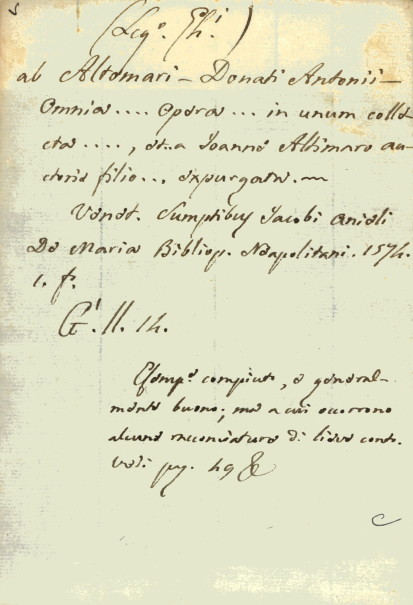 (Leg.º Ghi)
ab Altomari - Donati Antonii -
Omnia .... Opera ... in unum colle-
cta ...., et a Joanne Altimaro au-
ctoris filio ... expurgata. -
Venet. Sumptibus Jacobi Anieli
De Maria Bibliop. Neapolitani. 1574.
1. f.
G. II. 14.
Esemp.e compiuto, e general-
mente buono; ma a cui occorrono
alcune racconciature di lieve conto.
Vedi pag. 49